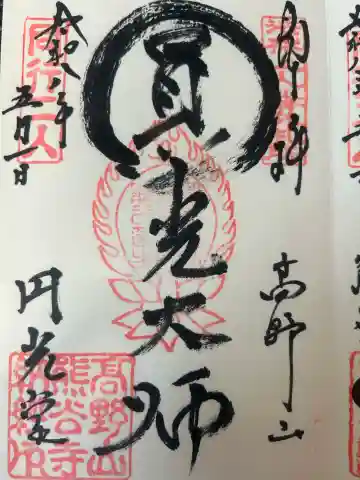 奉拝
高野山
圓光大師
令和八年
五月一日
円光堂
同行二人
高野山
熊谷寺